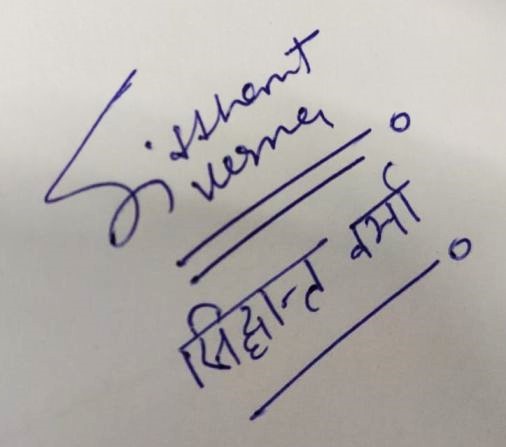 Sidshant
verma
सिद्धान्त वर्मा